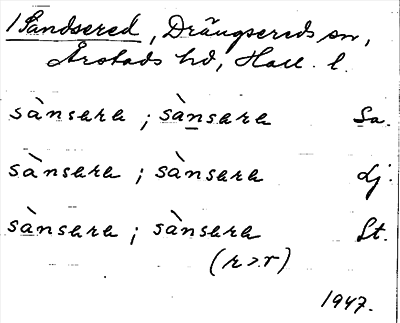 1 Sandsered, Drängsereds sn,
Årstads hd, Hall. l.
sànsara ; sànsara Sa.
sànsara ; sànsara Lj.
sànsara ; sànsara St.
(r > r)
1947.